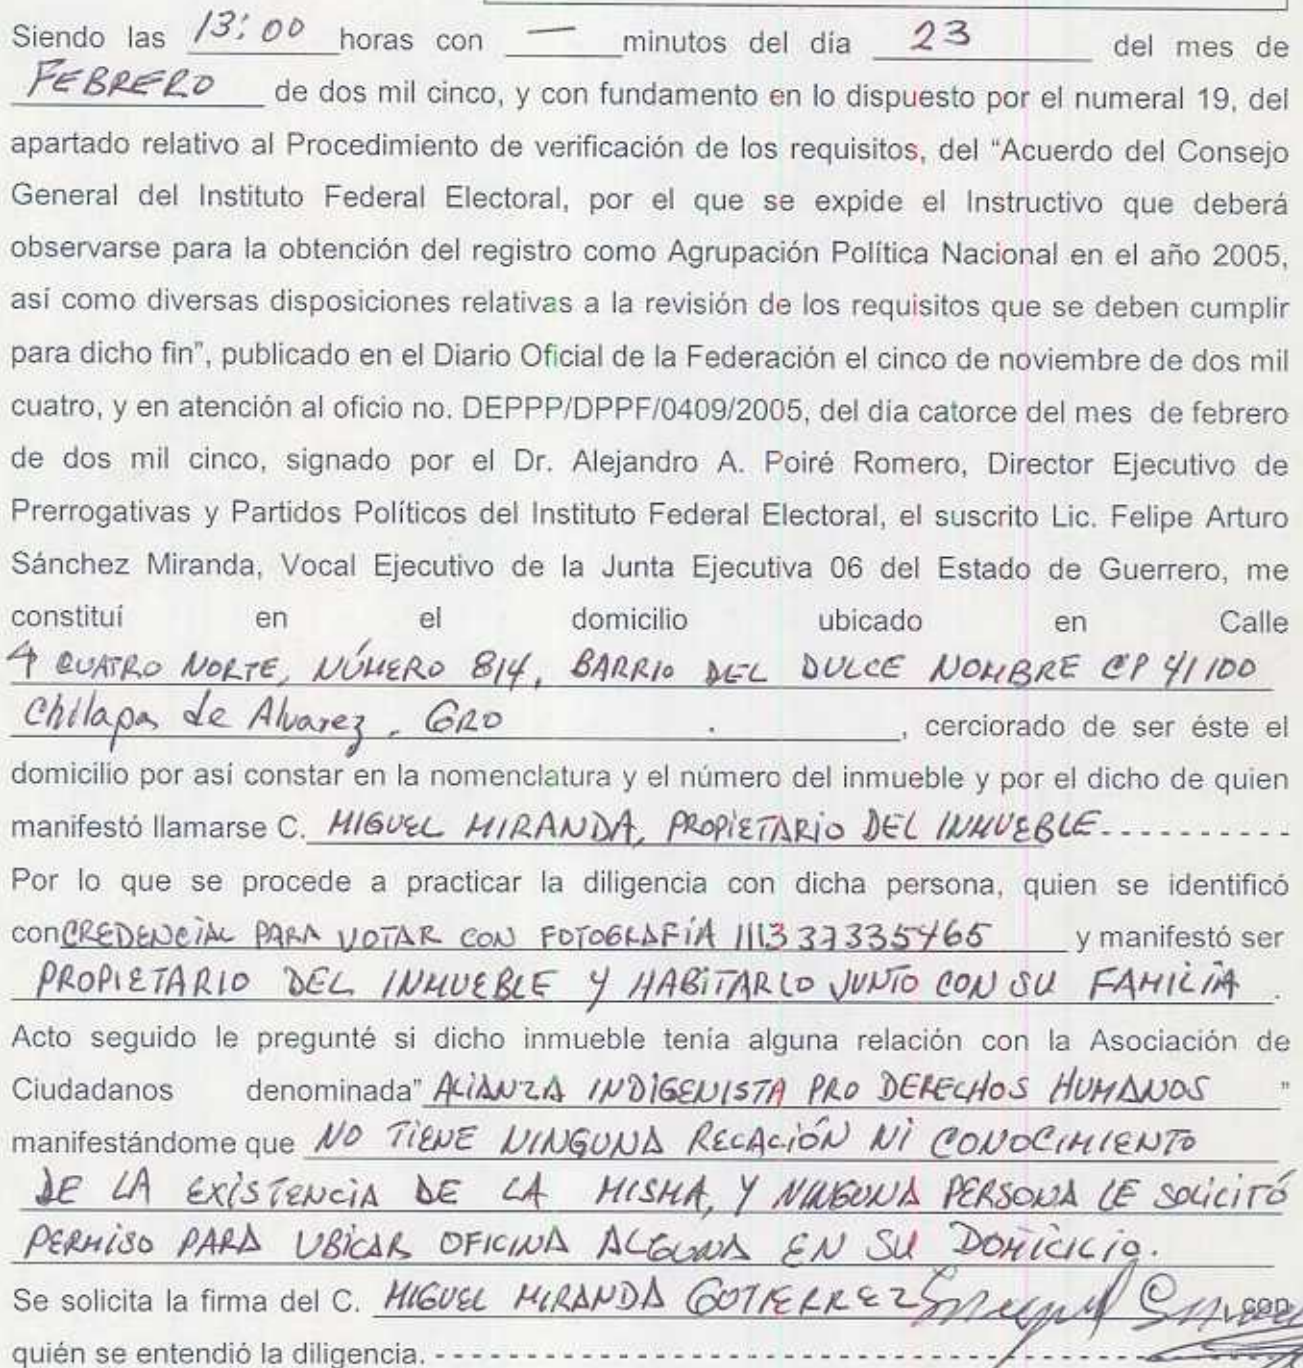 Siendo las 13:00 horas con — minutos del día 23 del mes de
FEBRERO de dos mil cinco, y con fundamento en lo dispuesto por el numeral 19, del
apartado relativo al Procedimiento de verificación de los requisitos, del “Acuerdo del Consejo
General del Instituto Federal Electoral, por el que se expide el Instructivo que deberá
observarse para la obtención del registro como Agrupación Política Nacional en el año 2005,
así como diversas disposiciones relativas a la revisión de los requisitos que se deben cumplir
para dicho fin”, publicado en el Diario Oficial de la Federación el cinco de noviembre de dos mil
cuatro, y en atención al oficio no. DEPPP/DPPF/0409/2005, del día catorce del mes de febrero
de dos mil cinco, signado por el Dr. Alejandro A. Poiré Romero, Director Ejecutivo de
Prerrogativas y Partidos Políticos del Instituto Federal Electoral, el suscrito Lic. Felipe Arturo
Sánchez Miranda, Vocal Ejecutivo de la Junta Ejecutiva 06 del Estado de Guerrero, me
constituí en el domicilio ubicado en Calle
4 CUATRO NORTE, NÚMERO 814, BARRIO DEL DULCE NOMBRE CP 41100
Chilapa de Alvarez, GRO , cerciorado de ser éste el
domicilio por así constar en la nomenclatura y el número del inmueble y por el dicho de quien
manifestó llamarse C. MIGUEL MIRANDA, PROPIETARIO DEL INMUEBLE - - - - - - - - - -
Por lo que se procede a practicar la diligencia con dicha persona, quien se identificó
con CREDENCIAL PARA VOTAR CON FOTOGRAFÍA 111337335465 y manifestó ser
PROPIETARIO DEL INMUEBLE Y HABITARLO JUNTO CON SU FAMILIA.
Acto seguido le pregunté si dicho inmueble tenía alguna relación con la Asociación de
Ciudadanos denominada” ALIANZA INDIGENISTA PRO DERECHOS HUMANOS ”
manifestándome que NO TIENE NINGUNA RELACIÓN NI CONOCIMIENTO
DE LA EXISTENCIA DE LA MISMA, Y NINGUNA PERSONA LE SOLICITÓ
PERMISO PARA UBICAR OFICINA ALGUNA EN SU DOMICILIO.
Se solicita la firma del C. MIGUEL MIRANDA GUTIERREZ , con
quién se entendió la diligencia. - - - - - - - - - - - - - - - - - - - - - - - - - - - - - -